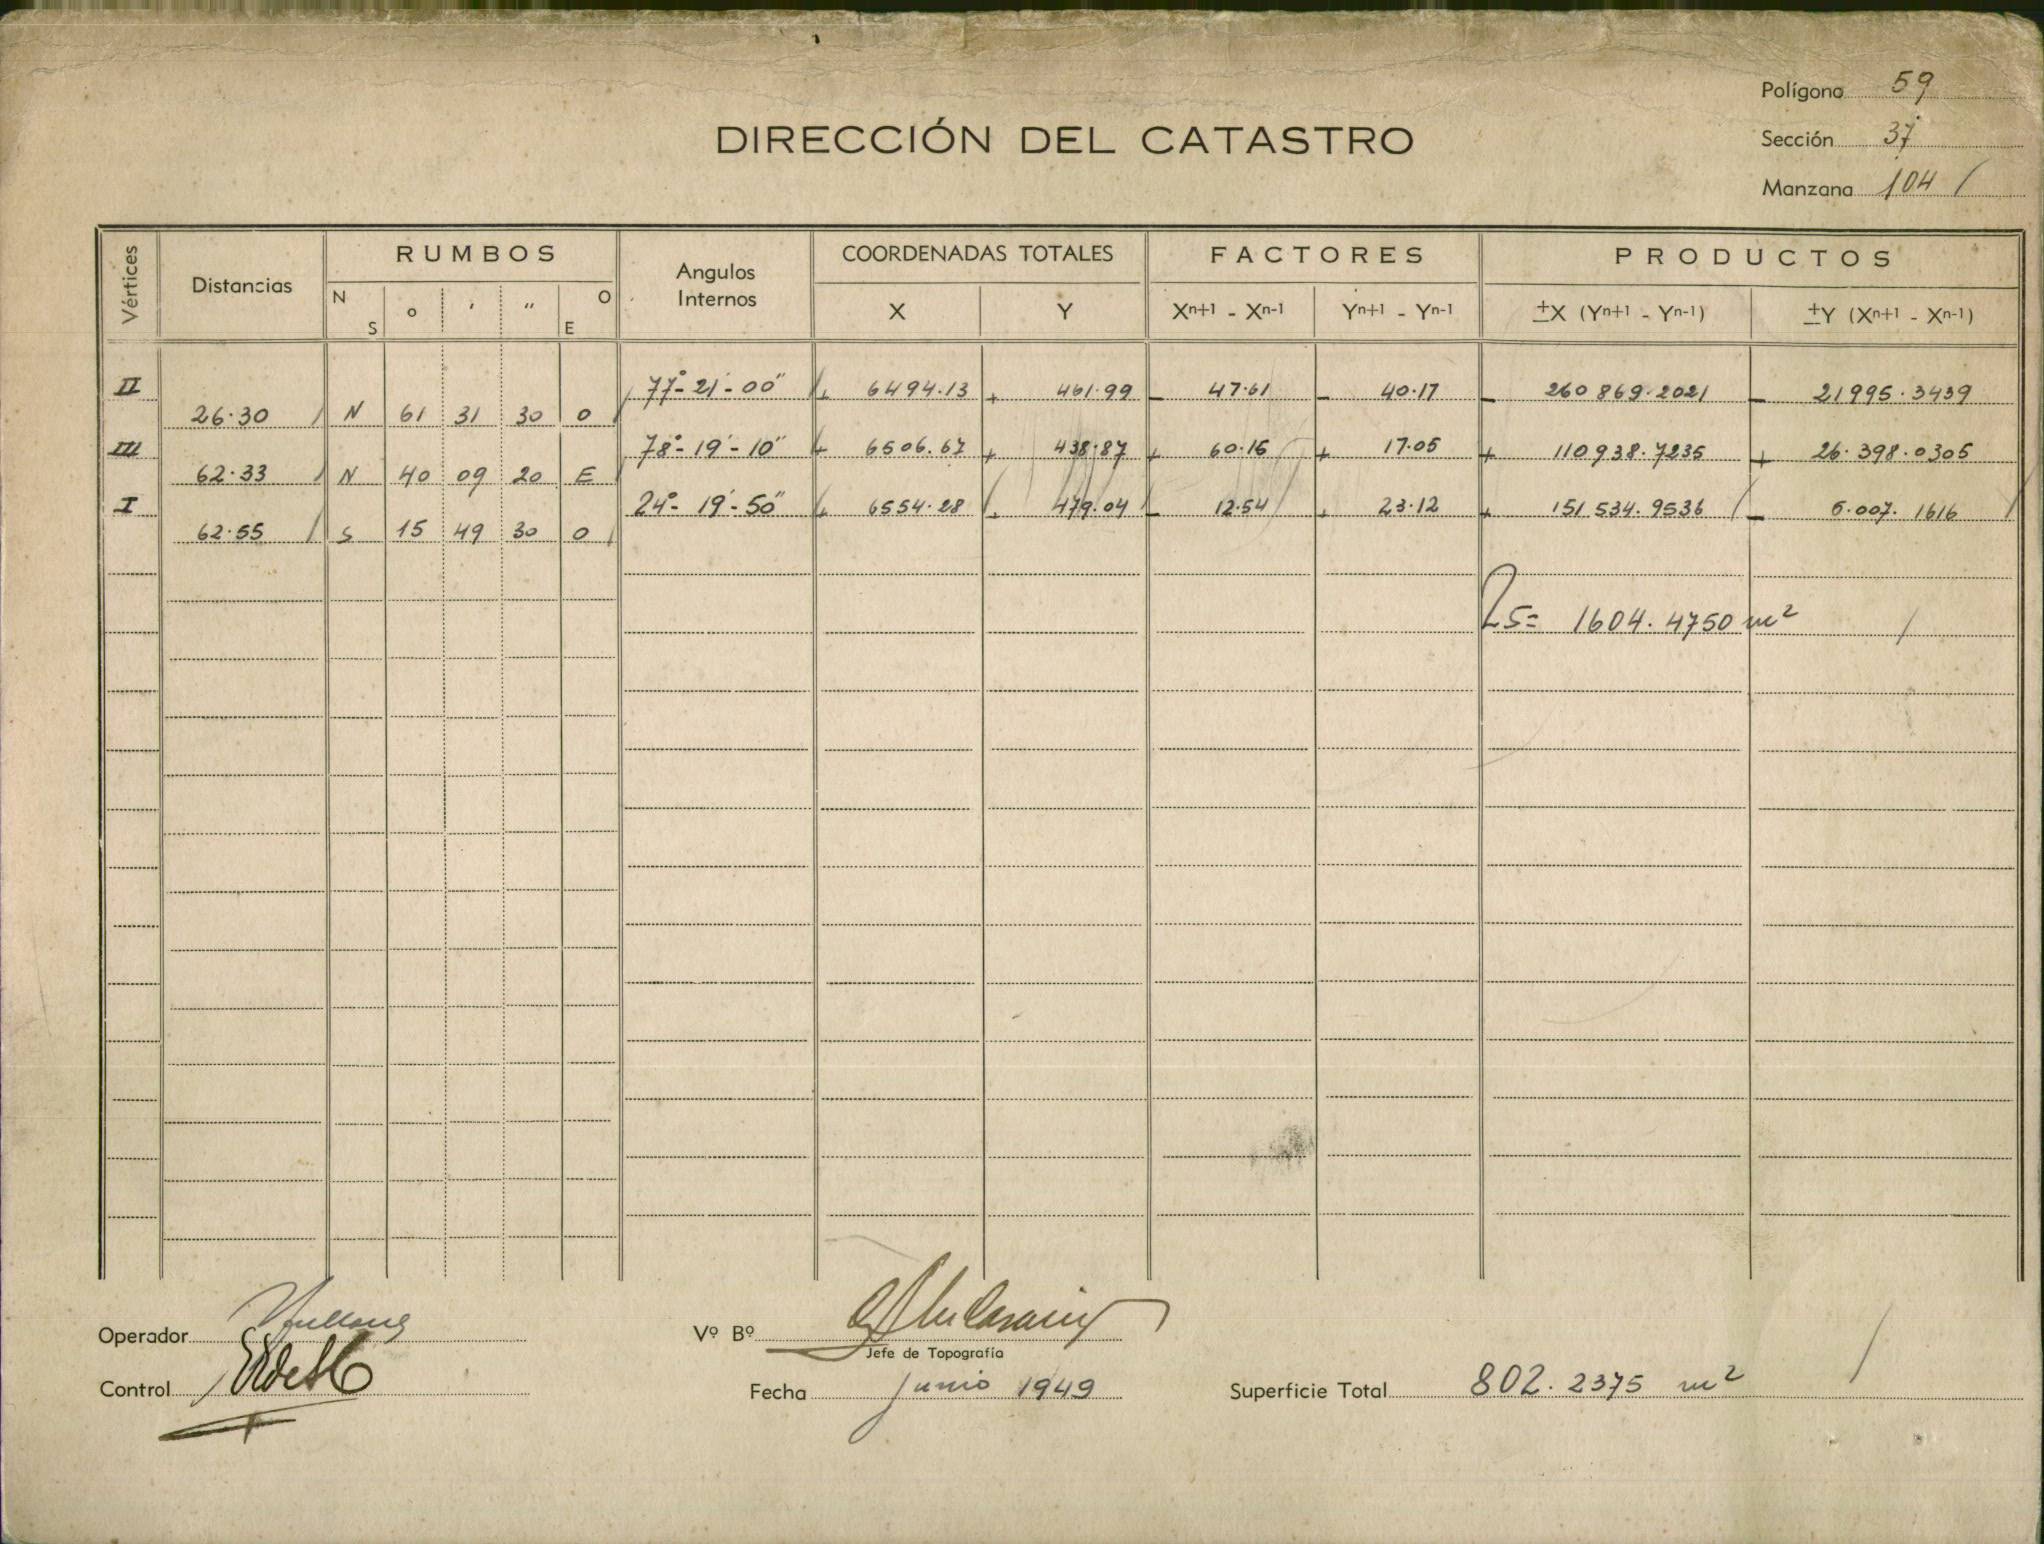 Polígono 59
DIRECCIÓN DEL CATASTRO
Sección 37
Manzana 104 /
Vértices Distancias RUMBOS Angulos Internos COORDENADAS TOTALES FACTORES PRODUCTOS
N S o ' " O E X Y Xn+1 - Xn-1 Yn+1 - Yn-1 ±X (Yn+1 - Yn-1) ±Y (Xn+1 - Xn-1)
II 77°-21'-00" + 6494.13 + 461.99 - 47.61 - 40.17 - 260 869.2021 - 21995.3439
26.30 N 61 31 30 O
III 78°-19'-10" + 6506.67 + 438.87 + 60.15 + 17.05 + 110938.7235 + 26.398.0305
62.33 N 40 09 20 E
I 24°-19'-50" + 6554.28 + 479.04 - 12.54 + 23.12 + 151 534.9536 - 6.007.1616
62.55 S 15 49 30 O
2S= 1604.4750 m²
Operador
Vº Bº
Jefe de Topografía
Control
Fecha Junio 1949
Superficie Total 802.2375 m²